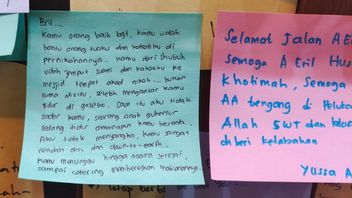 Eril...
Kamu orang baik bgt, kamu udah
bantu orang tuaku dan kakakku di
pernikahannya. kamu dari shubuh
udah jemput suami dan kakakku ke
mesjid tempat akad nikah... bukan
cuma disitu, setelah mengantar kamu
tidur di gazebo. saya itu aku tidak
sadar kamu, seorang anak gubernur
sedang tidur dimanapun kamu berada.
Aku tidak menyangka, kamu sangat
rendah diri dan down-to-earth.
kamu menunggu hingga acara selesai,
sampai catering membereskan makanannya.
Selamat Jalan A E
Semoga A Eril Hus
Khotimah, Semoga
AA tenang di Peluka
Allah SWT dan kelua
diberi ketabahan
Yussa A
tatap